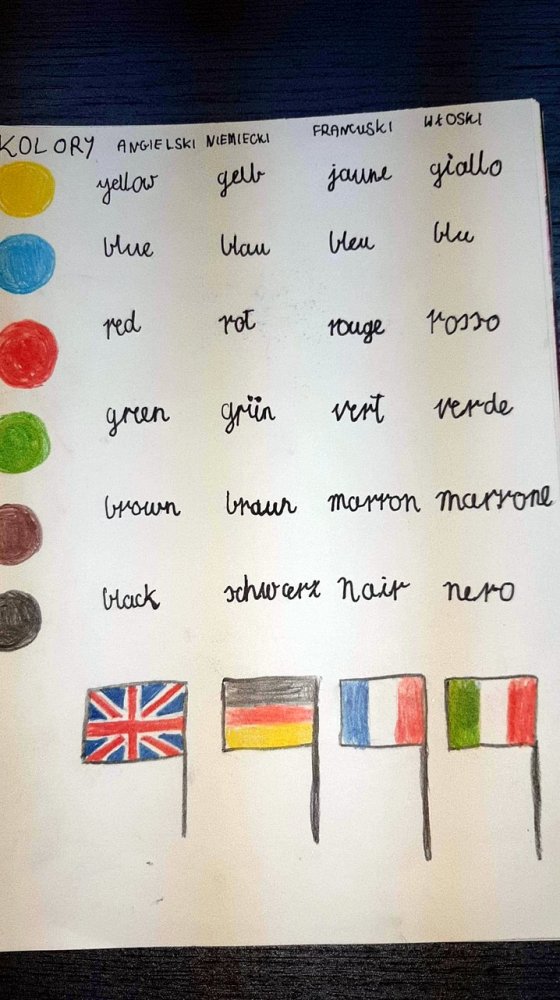 KOLORY ANGIELSKI NIEMIECKI FRANCUSKI WŁOSKI
yellow gelb jaune giallo
blue blau bleu blu
red rot rouge rosso
green grün vert verde
brown braun marron marrone
black schwarz Noir nero